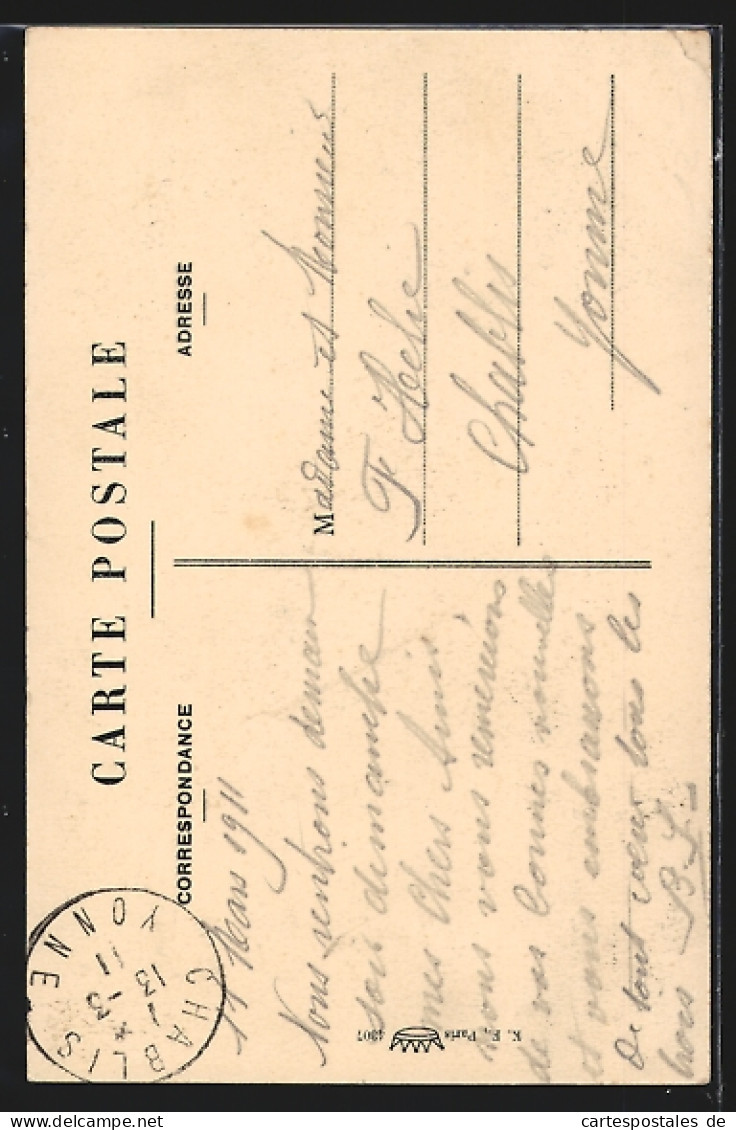 CARTE POSTALE
CORRESPONDANCE
ADRESSE
CHABLIS
YONNE
13 -3
11
Mars 1911
Nous rentrons demain
soir dimanche
mes Chers Amis,
nous vous remercions
de vos bonnes nouvelles
et vous embrassons
De tout cœur tous les
trois B. L.
Madame et Monsieur
F
Chablis
Yonne
K. F., Paris
4307
www.delcampe.net
cartespostales de